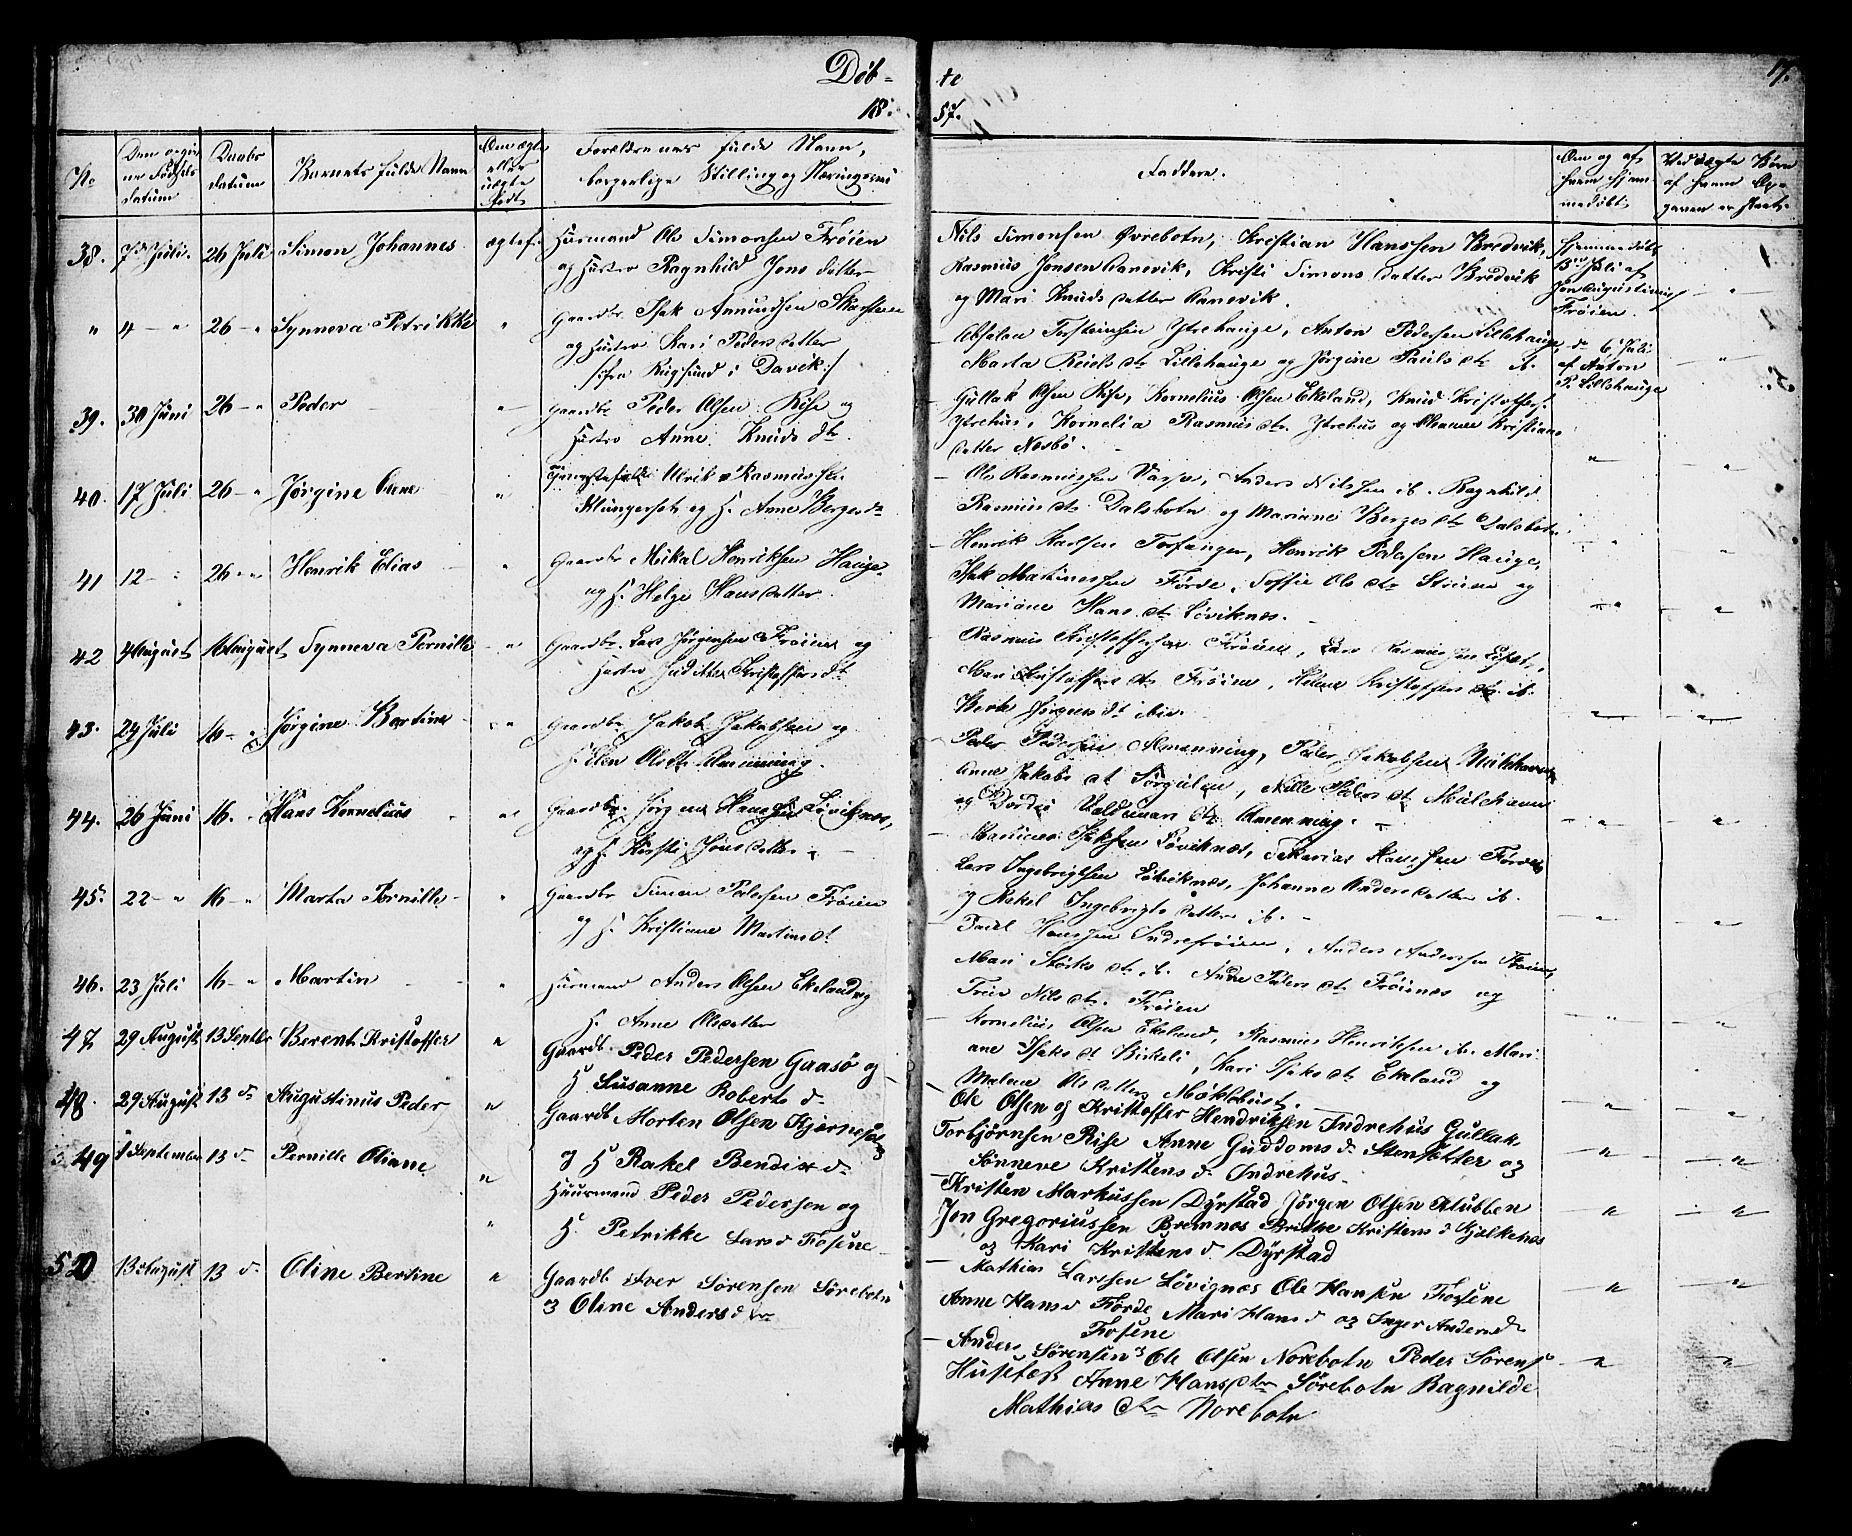 Døb-
te
17.
18.
57.
No
Den opgiv
ne Fødsels
datum
Daabs
datum
Barnets fulde Navn
Om ægte
eller
uægte
født
Forældrenes fulde Navn,
borgerlige Stilling og Næringsvei
Faddere.
Om og af
hvem hjem
medøbt
Ved uægte Børn
af hvem Op-
gaven er skeet.
38. 7de Juli. 26 Juli Simon Johannes ægtef. Huusmand Ole Simonsen Frøien
og Hustro Ragnhild Jons datter
Nils Simonsen Øvrebotn, Kristian Hanssen Bredvik,
Rasmus Jonsen Ranevik, Kristi Simons datter Bredvik
og Mari Knuds datter Ranevik.
Hjemmedøbt
Juli af
Jon Augustinus
Frøien.
" 4 - " 26 - " Synneva Petrikke " Gaardbr Isak Amundsen Skarsteen
og Hustro Kari Peders datter
/:fra Rugsund i Davik:/
Absalon Torsteinsen Ytrehauge, Anton Pedersen Lillehauge,
Marta Reids dtr Lillehauge og Jørgine Pauls dtr ib.
do 6 Juli
af Anton
P. Lillehauge
39. 30 Juni 26 - " Peder " Gaardbr Peder Olsen Rise og
Hustro Anne Knuds dt.
Gullak Olsen Rise, Kornelius Olsen Ekeland, Knud Kristoffers.
Ytrehus, Kornelia Rasmus dtr. Ytrehus og Kristians
datter Nesbø.
40. 17 Juli 26 - " Jørgine Oline " Ulrik Rasmussen
Klungerset og H. Anne Børges dtr
Ole Rasmussen Anders Nilssen ib. Ragnhild
Rasmus dtr Dalsbotn og Mariane Børges dtr Dalsbotn
41 12 - " 26 - " Henrik Elias " Gaardbr Mikal Henriksen Hauge
og H. Helge Hans datter
Henrik Karlsen Torfanger, Henrik Pedersen Hauge,
Isak Martinessen Førde, Soffie Ols dtr Strume og
Mariane Hans dtr Løviknes.
42 4 August 16 August Synneva Pernille " Gaardbr Lars Jørgensen Frøien og
Hustro Judithe Kristoffers dt
Rasmus Kristoffersen Frøien, Lars Rasmussen
Mari Kristoffers dtr Frøien, Helene Kristoffers dtr ib.
Berte Jørgens dt ibid.
43. 24 Juli 16 - " Jørgine Bertine " Gaardbr Jakob Jakobsen og
H. Elen Ols dtr Almenning.
Peder Pedersen Almenning, Peder Jakobsen Mulehavn
Anne Jakobs dt Sørgulen, Nille Peders dt Mulehavn
og Dordei Valdemar dtr Almenning.
44. 26 Juni 16. " Hans Kornelius " Gaardbr. Jørgen Hanssen Løviknes,
og H. Kirsti Jons datter.
Martinus Isaksen Løviknes, Sakarias Hanssen Førde
Lars Ingebrigtsen Løviknes, Johanne Anders datter ib.
og Rakel Ingebrigts datter ib.
45. 22 - " 16 - " Marta Pernille " Gaardbr Simon Pedersen Frøien
og H. Kristiane Martins dt
Paul Hanssen Indrefrøien, Anders Andersen Frøien,
Mari Størks dtr ib. Andre Peders dt Frøienes og
Nils dtr. Frøien
46. 23 Juli 16 - " Martin " Huusmand Anders Olsen Ekeland og
H. Anne Olsdatter
Kornelius Olsen Ekeland, Rasmus Henriksen ib. Mari
ane Isaks dt Birkeli, Kari Isaks dtr Ekeland og
Malene Ols datter Møklebust.
47 29 August 13 Septbr Berent Kristoffer " Gaardb. Peder Pedersen Gaasø og
H Susanne Roberts d-
Ole Olsen og Kristoffer Hendriksen Indrehus Gullak
Torbjørnsen Rise Anne Guddoms d. Stensætter og
Sønneve Kristens d. Indrehus.
48. 29 August 13 d- Augustinus Peder " Gaardb Morten Olsen Kjerneset
og H Rakel Bendix d-
Kristen Markussen Dyrstad Jørgen Olsen Klubben
Jon Gregoriussen Bremnes Britthe Kristens d Gjælkenes
og Kari Kristens d. Dyrstad
49 1 September 13 d- Pernille Oliane " Huusmand Peder Pedersen og
H. Petrikke Lars d Fosene
Mathias Larssen Løvignæs Ole Hansen Fosene
Anne Hans d Førde Mari Hans d og Inger Anders d-
Fosene
50 13 August 13 d- Oline Bertine " Gaardb Iver Sørensen Sørebotn
og Oline Anders dtr
Anders Sørensen og Ole Olsen Norebotn Peder Sørens
Husefest Anne Hans dtr Sørebotn Ragnilde
Mathias dtr Norebotn